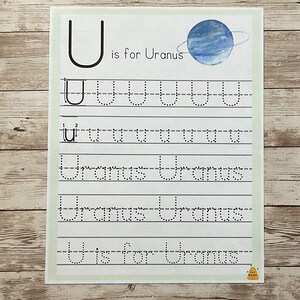 U is for Uranus
U U U U U U
u u u u u u u u
Uranus Uranus
Uranus Uranus
U is for Uranus